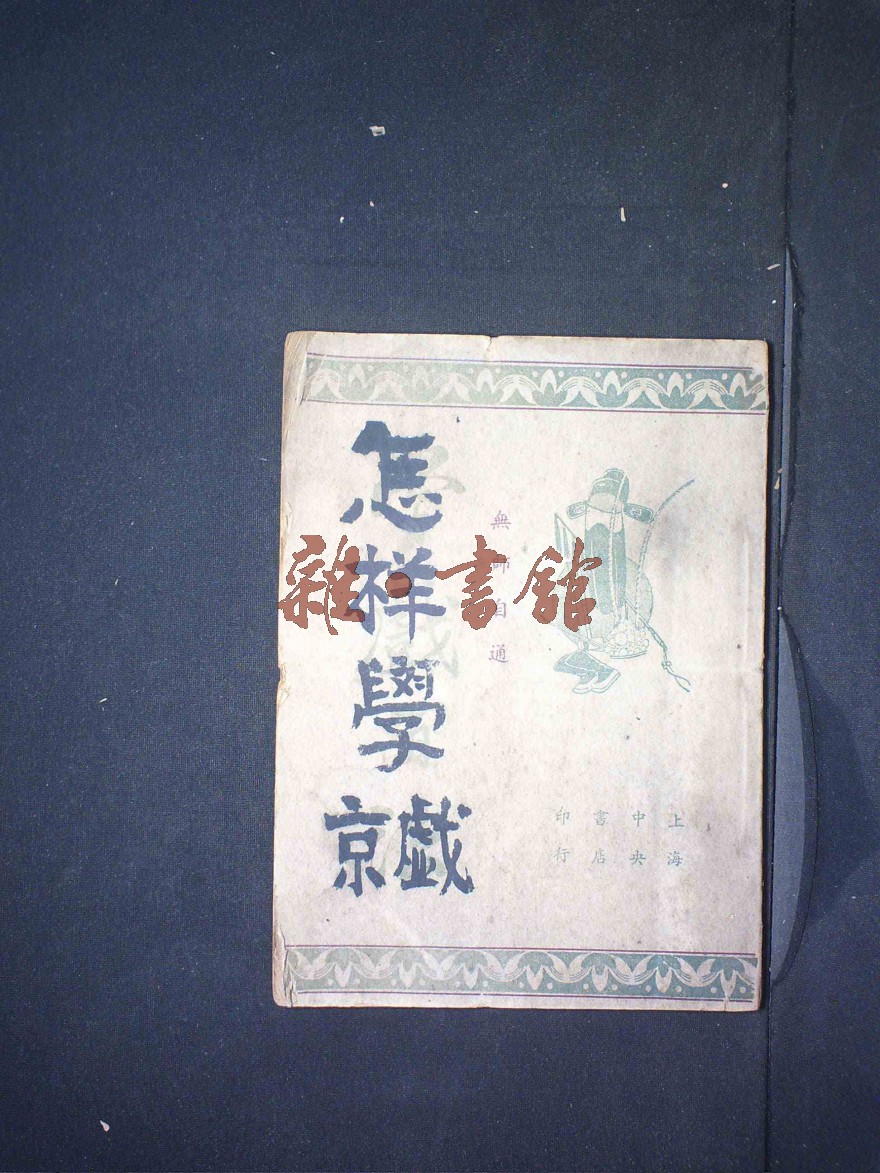 怎样學京戯
無師自通
上海
中央
書店
印行
雜·書館